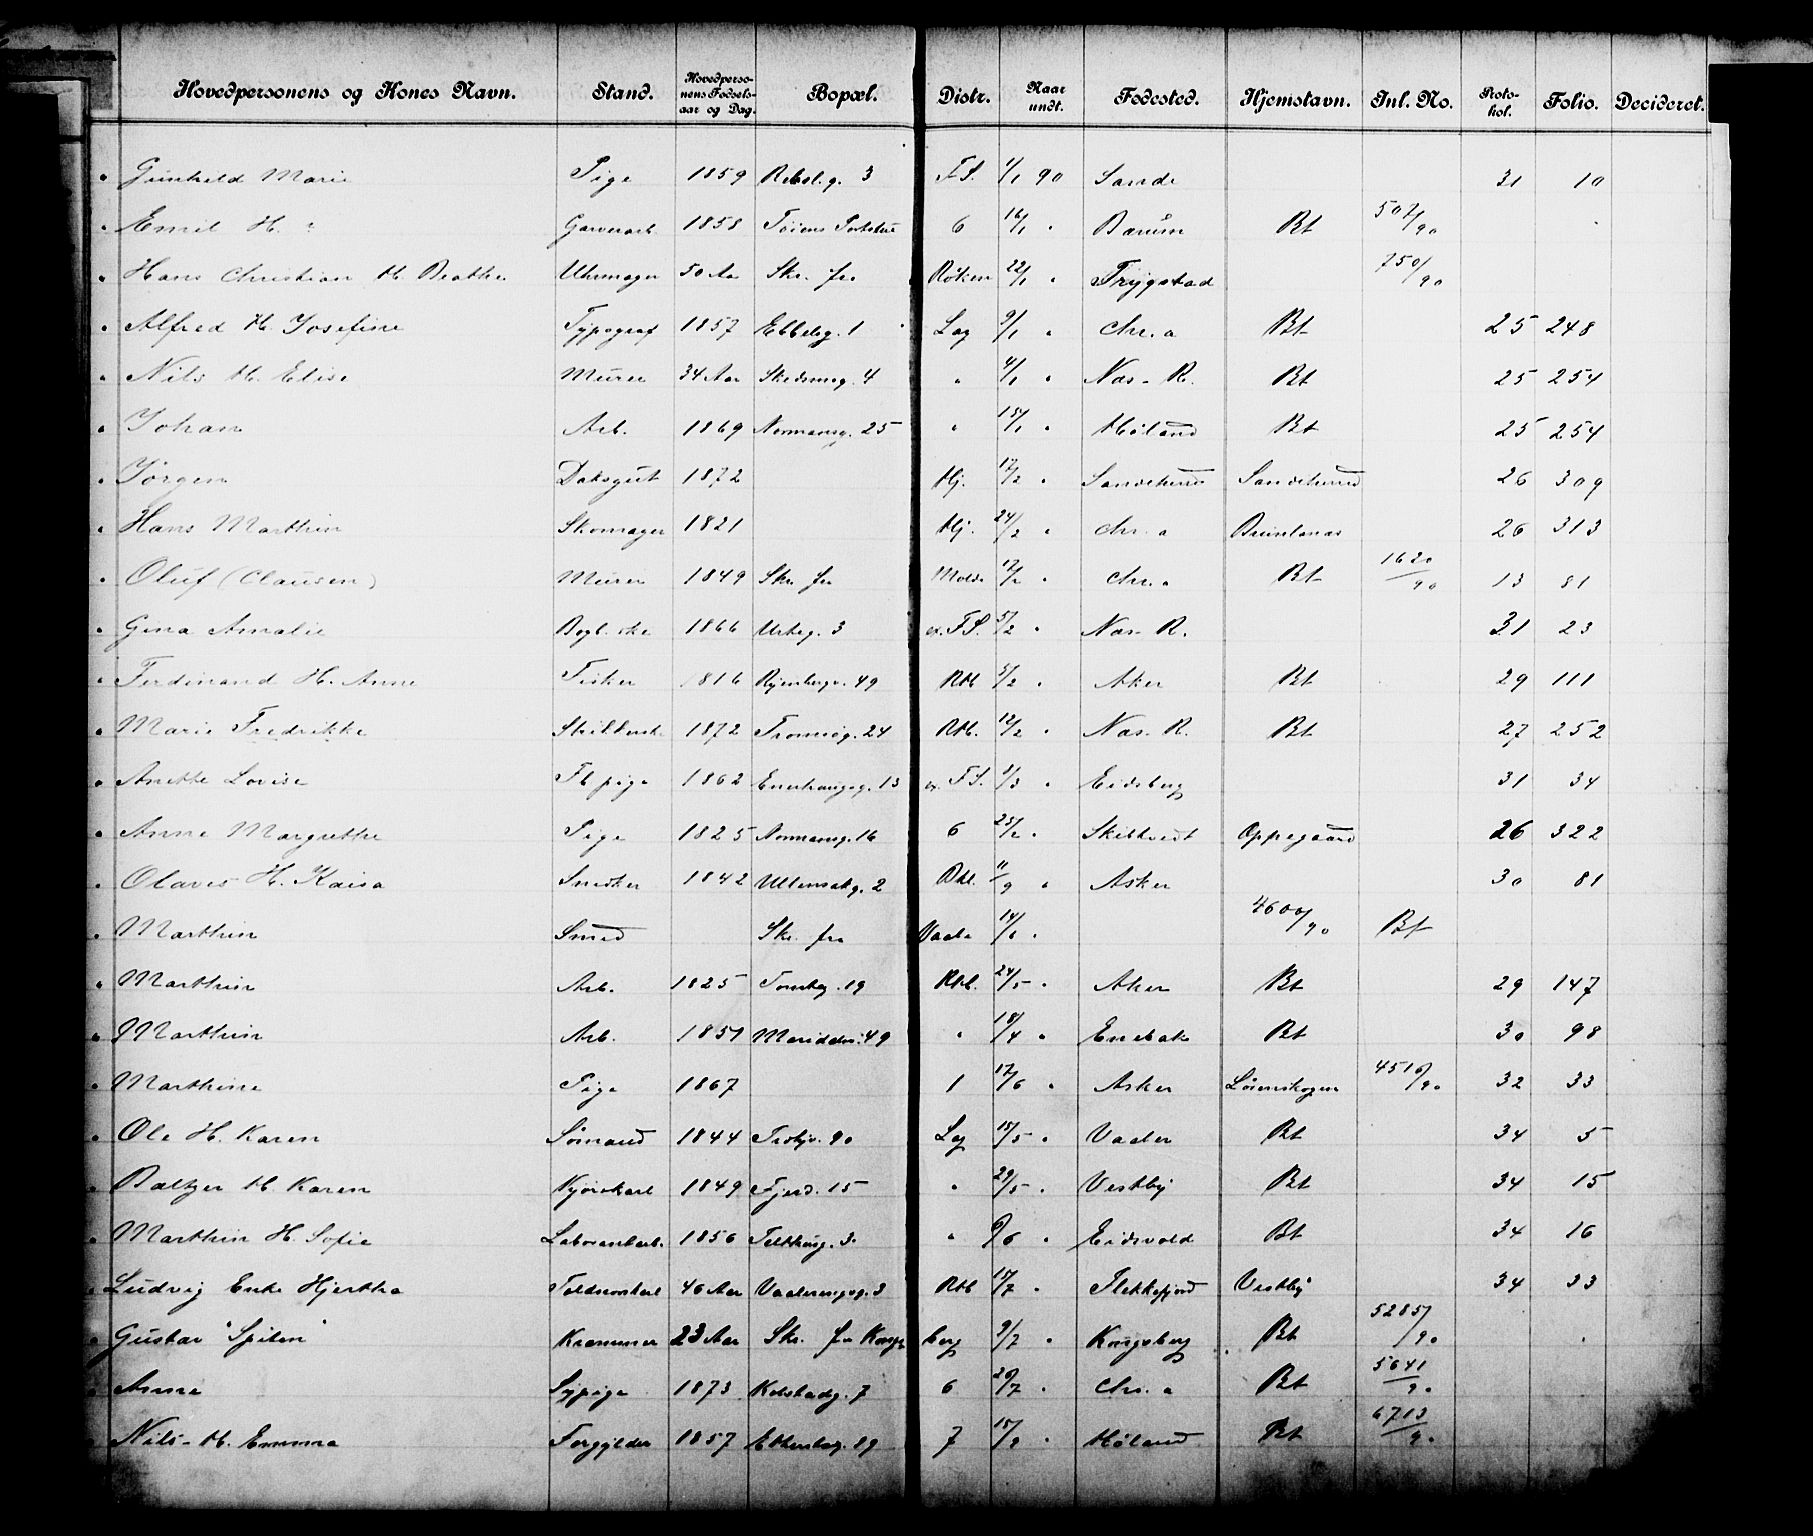 Hovedpersonens og Kones Navn. Stand. Hovedpersonens Fødselsaar og Dag. Bopæl. Distr. Naar undt. Fødested. Hjemstavn. Inl. No. Protokol. Folio. Decideret.
Gunhild Marie Pige 1859 Rebsl.g. 3 F.S. 1/1 90 Sande 31 10
Emil H. " Garverarb. 1858 Tøiens 6 16/1 " Bærum Bt 507/90
Hans Christian H. Beathe Uhrmager 50 Aar Skr. fra Røken 22/1 " Trygstad 750/90
Alfred H. Josefine Typograf 1857 Ebbelsg. 1 Lag 9/1 " Chr.a Bt 25 248
Nils H. Elise Murer 34 Aar Skedsmog. 4 " 4/1 " Næs R. Bt 25 254
Johan Arb. 1869 Normansg. 25 " 15/1 " Høland Bt 25 254
Jørgen Daksgut 1872 Hj. 17/2 " Sandeherred Sandeherred 26 309
Hans Marthin Skomager 1821 Hj. 24/2 " Chr.a Brunlanæs 26 313
Oluf (Clausen) Murer 1849 Skr. fra Molde 12/2 " Chr.a Bt 1620/90 13 81
Gina Amalie 1866 Urteg. 3 F.S. 5/2 " Næs R. 31 23
Ferdinand H. Anne Fisker 1816 Ryenbergv. 49 Rtb 5/2 " Aker Bt 29 111
Marie Fredrikke 1872 Tromsøg. 24 Rtb. 12/2 " Næs R. Bt 27 252
Anette Lovise Fb. pige 1862 Enerhaugsg. 13 F.S. 1/3 " Eidsberg 31 34
Anne Margrethe Pige 1825 Normansg. 16 6 25/2 " Skibtvedt Oppegaard 26 322
Olaves H. Kaisa Snedker 1842 Ullensakg. 2 11/9 " Asker 30 81
Marthin Smed Skr. fra Vaale 14/6 " 4600/90 Bt
Marthin Arb. 1825 Tomteg. 19 Rtb. 24/5 " Aker Bt 29 147
Marthin Arb. 1851 Maridalsv. 49 " 18/4 " Enebak Bt 30 98
Marthine Pige 1867 1 17/6 " Asker Løienskogen 4516/90 32 33
Ole H. Karen Sømand 1844 90 Lag 15/5 " Vaaler Bt 34 5
Baltzer H. Karen Kjørekarl 1849 Fjerd. 15 " 29/5 " Vestby Bt 34 15
Marthin H. Sofie Laborantarb. 1856 Telthusg. 3 " 9/6 " Eidsvold Bt 34 16
Ludvig Enke Hjertha 46 Aar Vaalerengsg. 3 Rtb 15/7 " Flekkefjord Vestby 34 33
Gustav "Spilen" Kræmmer 23 Aar Skr. fra Kongs berg 9/7 " Kongsberg Bt 5285/90
Anne Sypige 1873 Kolstadg. 7 6 26/7 " Chr.a Bt 5641/90
Nils H. Emma Forgylder 1857 Etterstadg. 29 7 15/2 " Høland Bt 6713/90